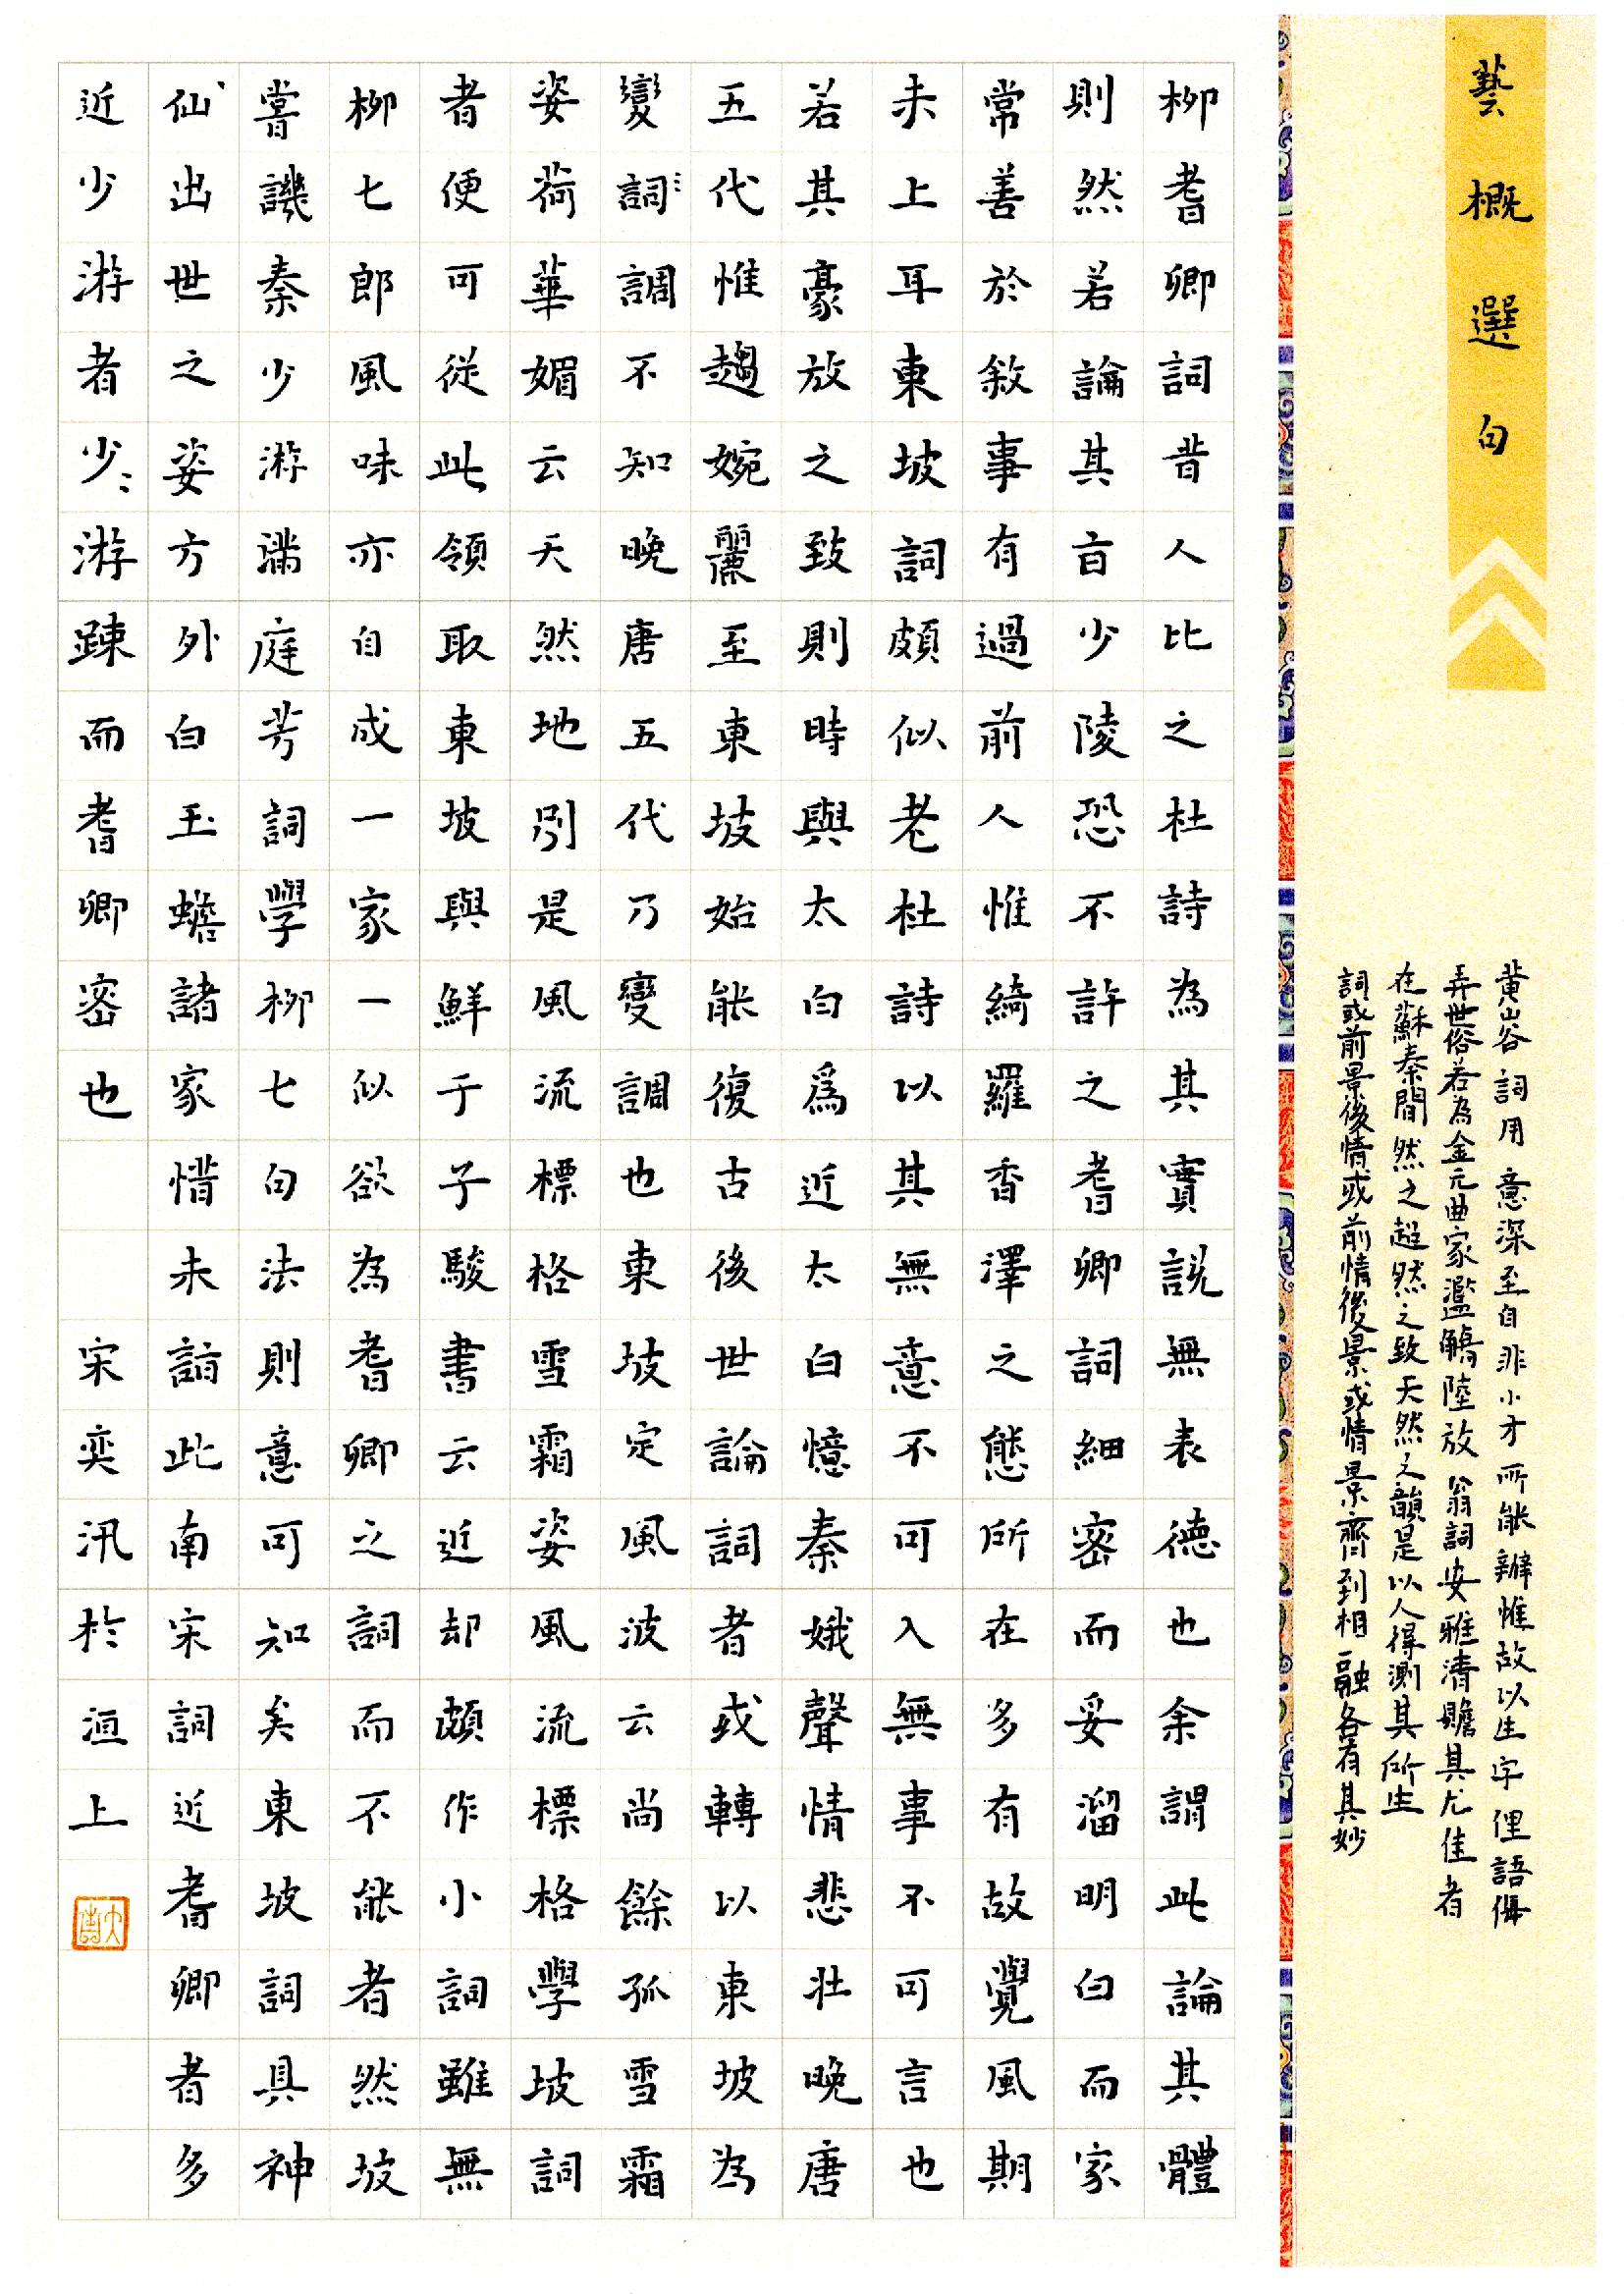 藝概選句
黃山谷詞用意深至自非小才所能辦惟故以生字俚語侮
弄世俗若為金元曲家濫觴陸放翁詞安雅清贍其尤佳者
在蘇秦間然之超然之致天然之韻是以人得測其所生
詞或前景後情或前情後景或情景齊到相融各有其妙
柳耆卿詞昔人比之杜詩為其實說無表德也余謂此論其體
則然若論其旨少陵恐不許之耆卿詞細密而妥溜明白而家
常善於敘事有過前人惟綺羅香澤之態所在多有故覺風期
未上耳東坡詞頗似老杜詩以其無意不可入無事不可言也
若其豪放之致則時與太白爲近太白憶秦娥聲情悲壯晚唐
五代惟趨婉麗至東坡始能復古後世論詞者或轉以東坡為
變詞調不知晚唐五代乃變調也東坡定風波云尚餘孤雪霜
姿荷華媚云天然地別是風流標格雪霜姿風流標格學坡詞
者便可從此領取東坡與鮮于子駿書云近却頗作小詞雖無
柳七郎風味亦自成一家一似欲為耆卿之詞而不能者然坡
嘗譏秦少游滿庭芳詞學柳七句法則意可知矣東坡詞具神
仙出世之姿方外白玉蟾諸家惜未詣此南宋詞近耆卿者多
近少游者少〻游疎而耆卿密也 宋奕汛於洹上